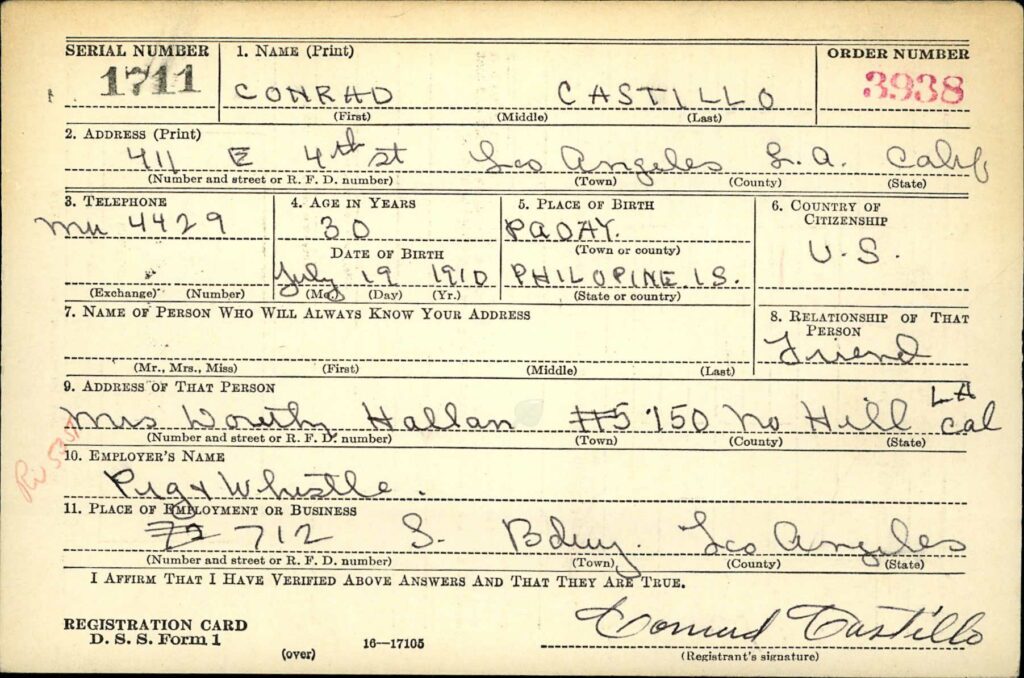 SERIAL NUMBER 1. NAME (Print) ORDER NUMBER
1711 CONRAD CASTILLO 3938
(First) (Middle) (Last)
2. ADDRESS (Print)
411 E 4th st Los Angeles L.A. Calif
(Number and street or R. F. D. number) (Town) (County) (State)
3. TELEPHONE 4. AGE IN YEARS 5. PLACE OF BIRTH 6. COUNTRY OF CITIZENSHIP
Mu 4429 30 PAOAY. U.S.
DATE OF BIRTH (Town or county)
July 19 1910 PHILOPINE IS.
(Exchange) (Number) (Mo.) (Day) (Yr.) (State or country)
7. NAME OF PERSON WHO WILL ALWAYS KNOW YOUR ADDRESS 8. RELATIONSHIP OF THAT PERSON
Friend
(Mr., Mrs., Miss) (First) (Middle) (Last)
9. ADDRESS OF THAT PERSON
Mrs Hallan 150 No Hill LA Cal
(Number and street or R. F. D. number) (Town) (County) (State)
10. EMPLOYER'S NAME
Pig & Whistle.
11. PLACE OF EMPLOYMENT OR BUSINESS
712 S. Bdwy. Los Angeles
(Number and street or R. F. D. number) (Town) (County) (State)
I AFFIRM THAT I HAVE VERIFIED ABOVE ANSWERS AND THAT THEY ARE TRUE.
Conrad Castillo
REGISTRATION CARD
D. S. S. Form 1 (over) 16—17105 (Registrant's signature)